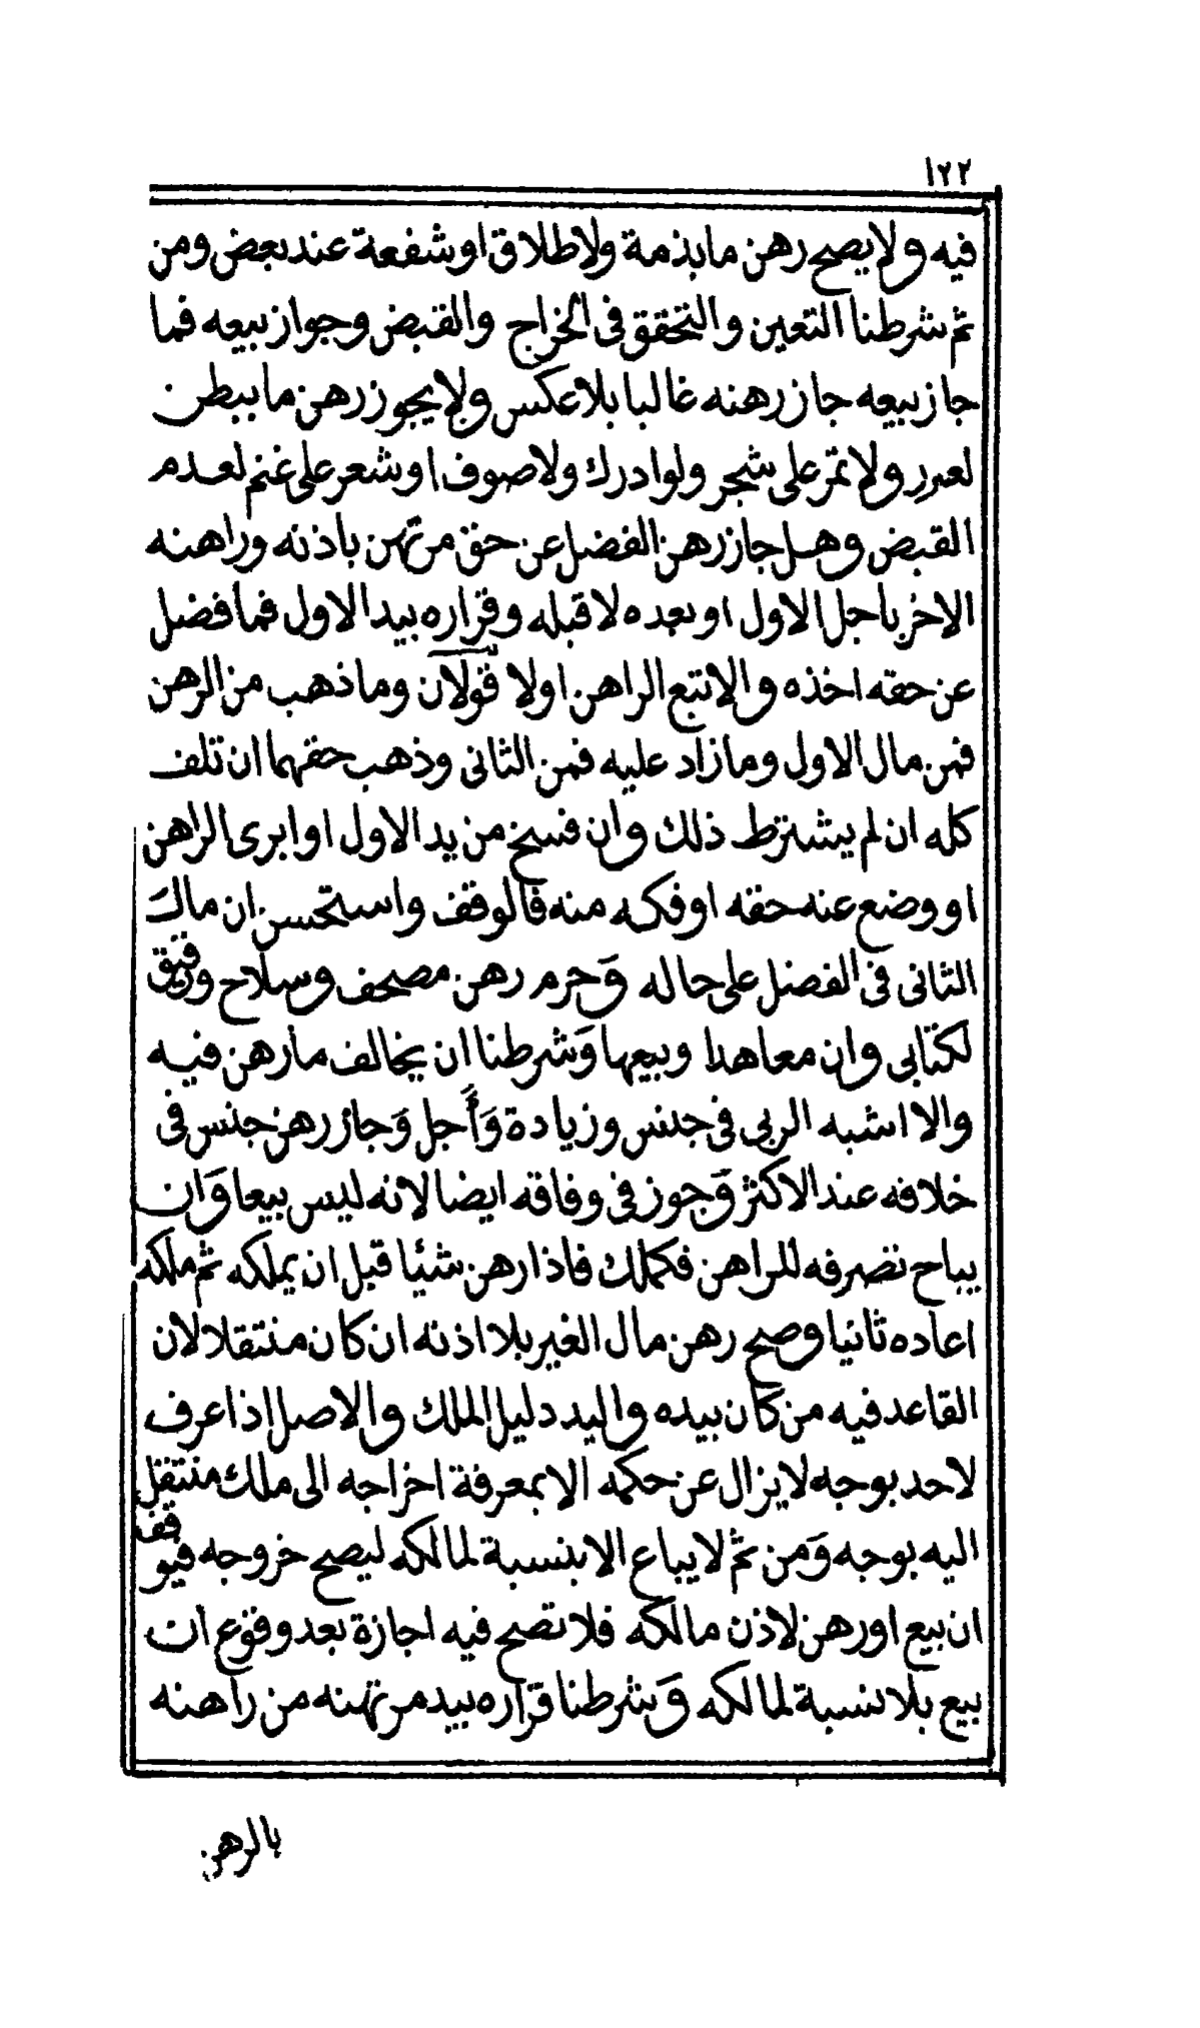 ١٢٢
فيه ولا يصح رهن ما بذمة ولا طلاق او شفعة عند بعض ومن
ثم شرطنا التعين والتحقق فى الخراج والقبض وجواز بيعه فما
جاز بيعه جاز رهنه غالبا بلا عكس ولا يجوز رهن ما ببطن
لغرر ولا ثمر على شجر ولو ادرك ولا صوف او شعر على غنم لعدم
القبض وهل جاز رهن الفضل عن حق مرتهن باذنه وراهنه
الاخر باجل الاول او بعده لا قبله وقراره بيد الاول فما فضل
عن حقه اخذه والا تتبع الراهن اولا قولان وما ذهب من الرهن
فمن مال الاول وما زاد عليه فمن الثانى وذهب حقهما ان تلف
كله ان لم يشترط ذلك وان فسخ من يد الاول او ابرى الراهن
او وضع عنه حقه او فكه منه فالوقف واستحسن ان مالك
الثانى فى الفضل على حاله وَحرم رهن مصحف وسلاح ورقيق
لكتابى وان معاهدا وبيعها وَشرطنا ان يخالف ما رهن فيه
والا اشبه الربى فى جنس وزيادة وَأَجل وَجاز رهن جنس فى
خلافه عند الاكثر وَجوز فى وفاقه ايضا لانه ليس بيعا وَان
يباح تصرفه للراهن فكملك فاذا رهن شئيا قبل ان يملكه ثم ملكه
اعاده ثانيا وصح رهن مال الغير بلا اذنه ان كان منتقلا لان
القاعد فيه من كان بيده واليد دليل الملك والاصل اذا عرف
لاحد بوجه لا يزال عن حكمه الا بمعرفة اخراجه الى ملك منتقل
اليه بوجه وَمن ثم لا يباع الا بنسبة لمالكه ليصح خروجه فيوقف
ان بيع او رهن لاذن مالكه فلا تصح فيه اجازة بعد وقوع ان
بيع بلا نسبة لمالكه وَشرطنا قراره بيد مرتهنه من راهنه
بالرهن